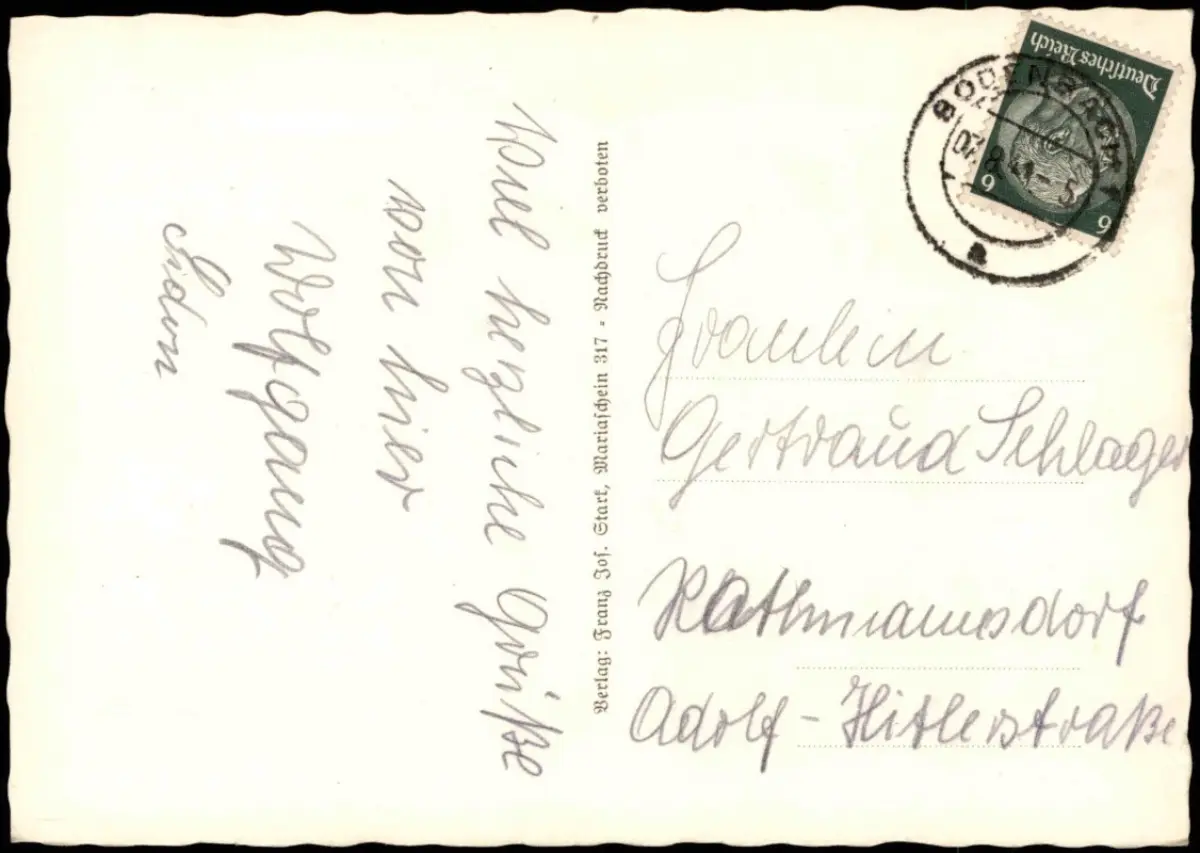 Viel herzliche Grüße
von hier
Wolfgang
Verlag: Franz Jos. Start, Mariaschein 317 - Nachdruck verboten
Deutsches Reich
6 6
BODENBACH 1
41-5
a
Fraulein
Gertraud Schlager
Rathmannsdorf
Adolf-Hitlerstraße